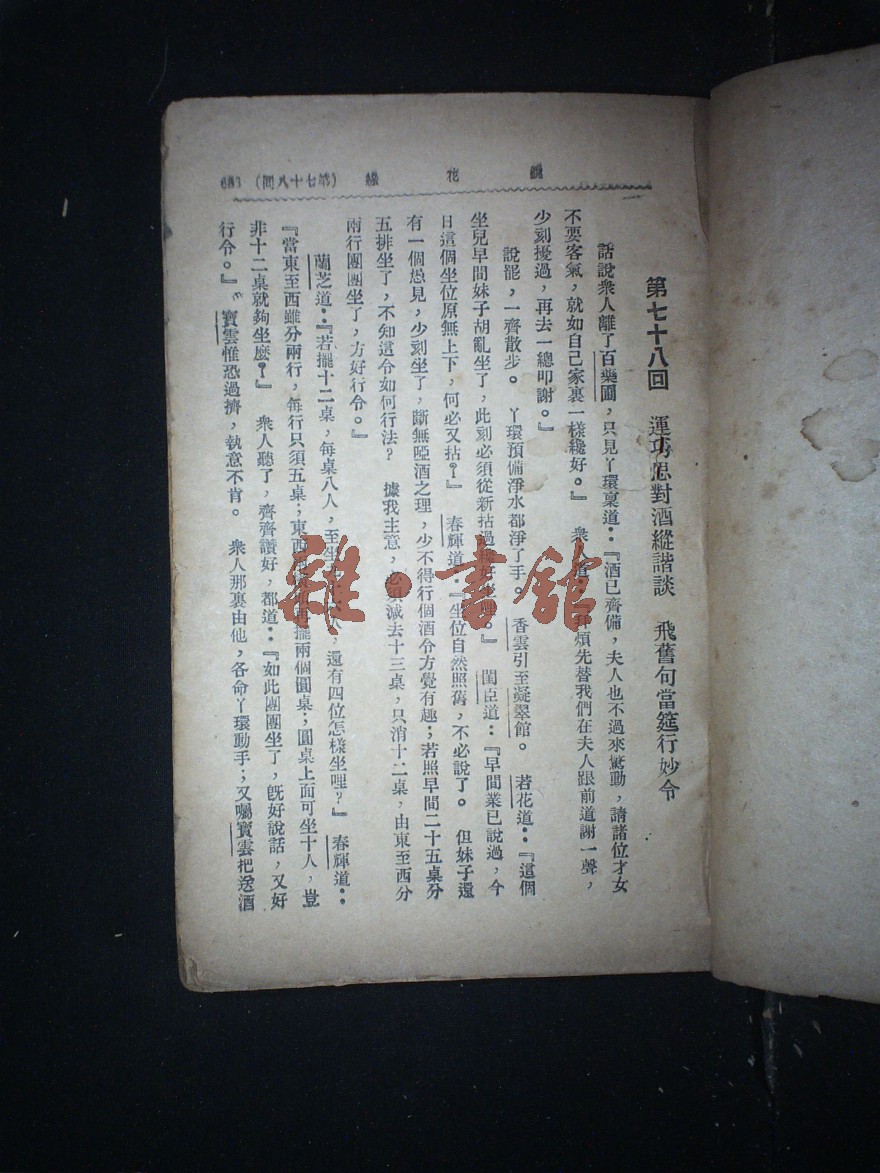 鏡花緣 (第七十八回)
第七十八回 運巧思對酒縱諧談 飛舊句當筵行妙令
話說衆人離了百藥圃，只見丫環稟道：『酒已齊備，夫人也不過來驚動，請諸位才女
不要客氣，就如自己家裏一樣纔好。』 衆人道：『拜煩先替我們在夫人跟前道謝一聲，
少刻擾過，再去一總叩謝。』
說罷，一齊散步。 丫環預備淨水都淨了手。 香雲引至凝翠館。 若花道：『這個
坐兒早間妹子胡亂坐了，此刻必須從新拈過 好 。』 閨臣道：『早間業已說過，今
日這個坐位原無上下，何必又拈？』 春輝道：『坐位自然照舊，不必說了。 但妹子還
有一個愚見，少刻坐了，斷無啞酒之理，少不得行個酒令方覺有趣；若照早間二十五桌分
五排坐了，不知這令如何行法？ 據我主意，必須減去十三桌，只消十二桌，由東至西分
兩行團團坐了，方好行令。』
蘭芝道：『若擺十二桌，每桌八人，至坐 人，還有四位怎樣坐哩？』 春輝道：
『當東至西雖分兩行，每行只須五桌；東西 再擺兩個圓桌；圓桌上面可坐十人，豈
非十二桌就夠坐麽？』 衆人聽了，齊齊讚好，都道：『如此團團坐了，旣好說話，又好
行令。』 寶雲惟恐過擠，執意不肯。 衆人那裏由他，各命丫環動手；又囑寶雲把送酒
雜·書館